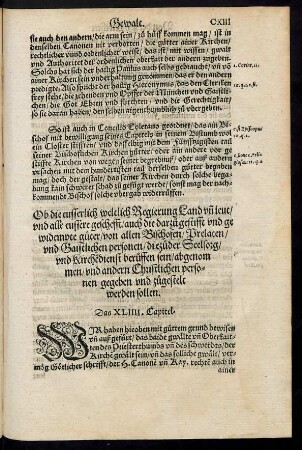 Gewalt. CXIII
sie auch den andern/ die arm sein/ zů hilff kommen mag/ ist in
denselben Canonen nit verbotten/ die gütter ainer Kirchen/
rechtlicher vnnd ordenlicher weise/ das ist/ mit wissen/ gwalt
vnd Authoritet der ordenlichen oberkait der andern zuzegeben
Solchs hat sich der hailig Paulus auch selbs gebraucht/ vnd võ
ainer Kirchen sein vnderhaltung genommen/ das er den andern
predigte. Also spricht der hailig Hieronymus/ das den Christen
frey stehe/ die zehenden vnd Opffer der Wittwen vnd Gaistli-
chen/ die Got Ehren vnd forchten/ vnd die Gerechtigkait
so sie daran haben/ den selben aigenthumblich zů vbergeben.
So ist auch in Concilio Toletano geordnet/ das ain Bi-
schof mit bewilligung seines Capitels in seinem Bistumb wol
ein Closter stifften/ vnd dasselbig mit dem Fünftzigisten tail
seiner Bischofflichen Kirchen gütter/ oder ain andere vor ge-
stiffte Kirchen von wegen seiner begrebnus/ oder auf ander
vrsachen mit dem hunderttisten tail der selben gütter begaben
mag/ doch der gestalt/ das seiner Kirchen durch solche begabun-
gen kain schwerer schad zů gefügt werde/ sonst mag der nach-
kommende Bischof solche vbergab widerruffen.
Ob die eusserlich weltlich Regierung Land vñ leut/
vnd alle eussere geschefft/ auch die darzů gestifft vnd ge
widempte gütter/ von allen Bischoffen/ Prelaten/
vnd Gaistlichen personen/ die zů der Seelsorg/
vnd Kirchēdienst berüffen sein/ abgenom
men/ vnd andern Christlichen perso-
nen gegeben vnd zůgestelt
werden sollen.
Das XLIIII. Capitel.
WIR haben hieoben mit gůttem grund bewisen
vñ auß gefürt/ das baide gwälte vñ Oberkai-
ten des Priesterthumbs vñ des schwerdts/ der
Kirchē gwält sein/ vñ das solliche gwält/ ver-
mög Götlicher schrifft/ der H. Canonē vñ Kay. rechtē auch in
ainer